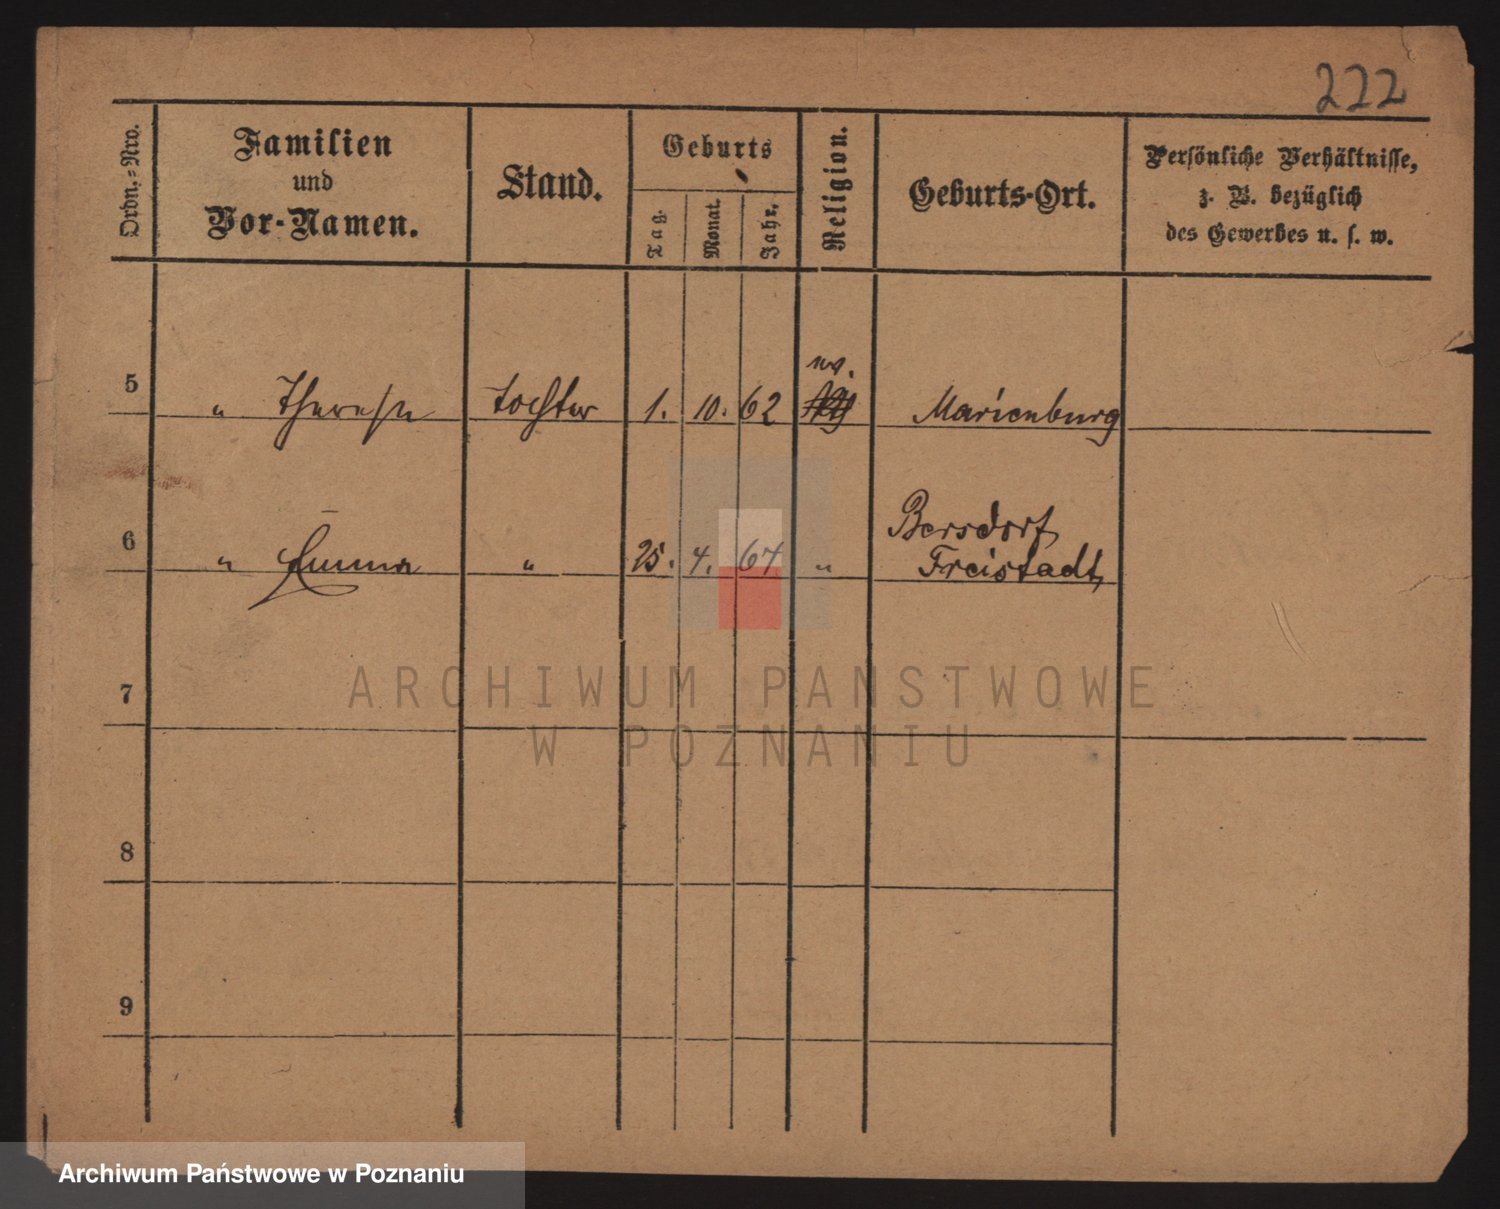 222
Ordn.-Nro.
Familien
und
Vor-Namen.
Stand.
Geburts
Tag.
Monat.
Jahr.
Religion.
Geburts-Ort.
Persönliche Verhältnisse,
z. B. bezüglich
des Gewerbes u. s. w.
ev.
5 " Therese Tochter 1. 10. 62 Marienburg
Bersdorf
6 " Emma " 25. 4. 64 " Freistadt,
7
ARCHIWUM PAŃSTWOWE
W POZNANIU
8
9
Archiwum Państwowe w Poznaniu